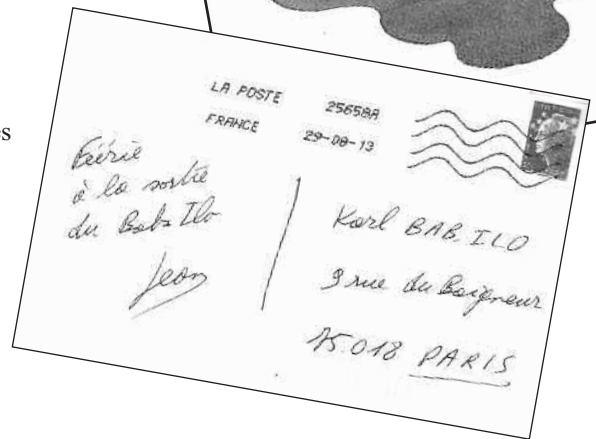 es
LA POSTE 25658A
FRANCE 29-08-13
Féérie
à la sortie
du Bab Ilo
Jean
Karl BAB. ILO
9 rue du Baigneur
75.018 PARIS